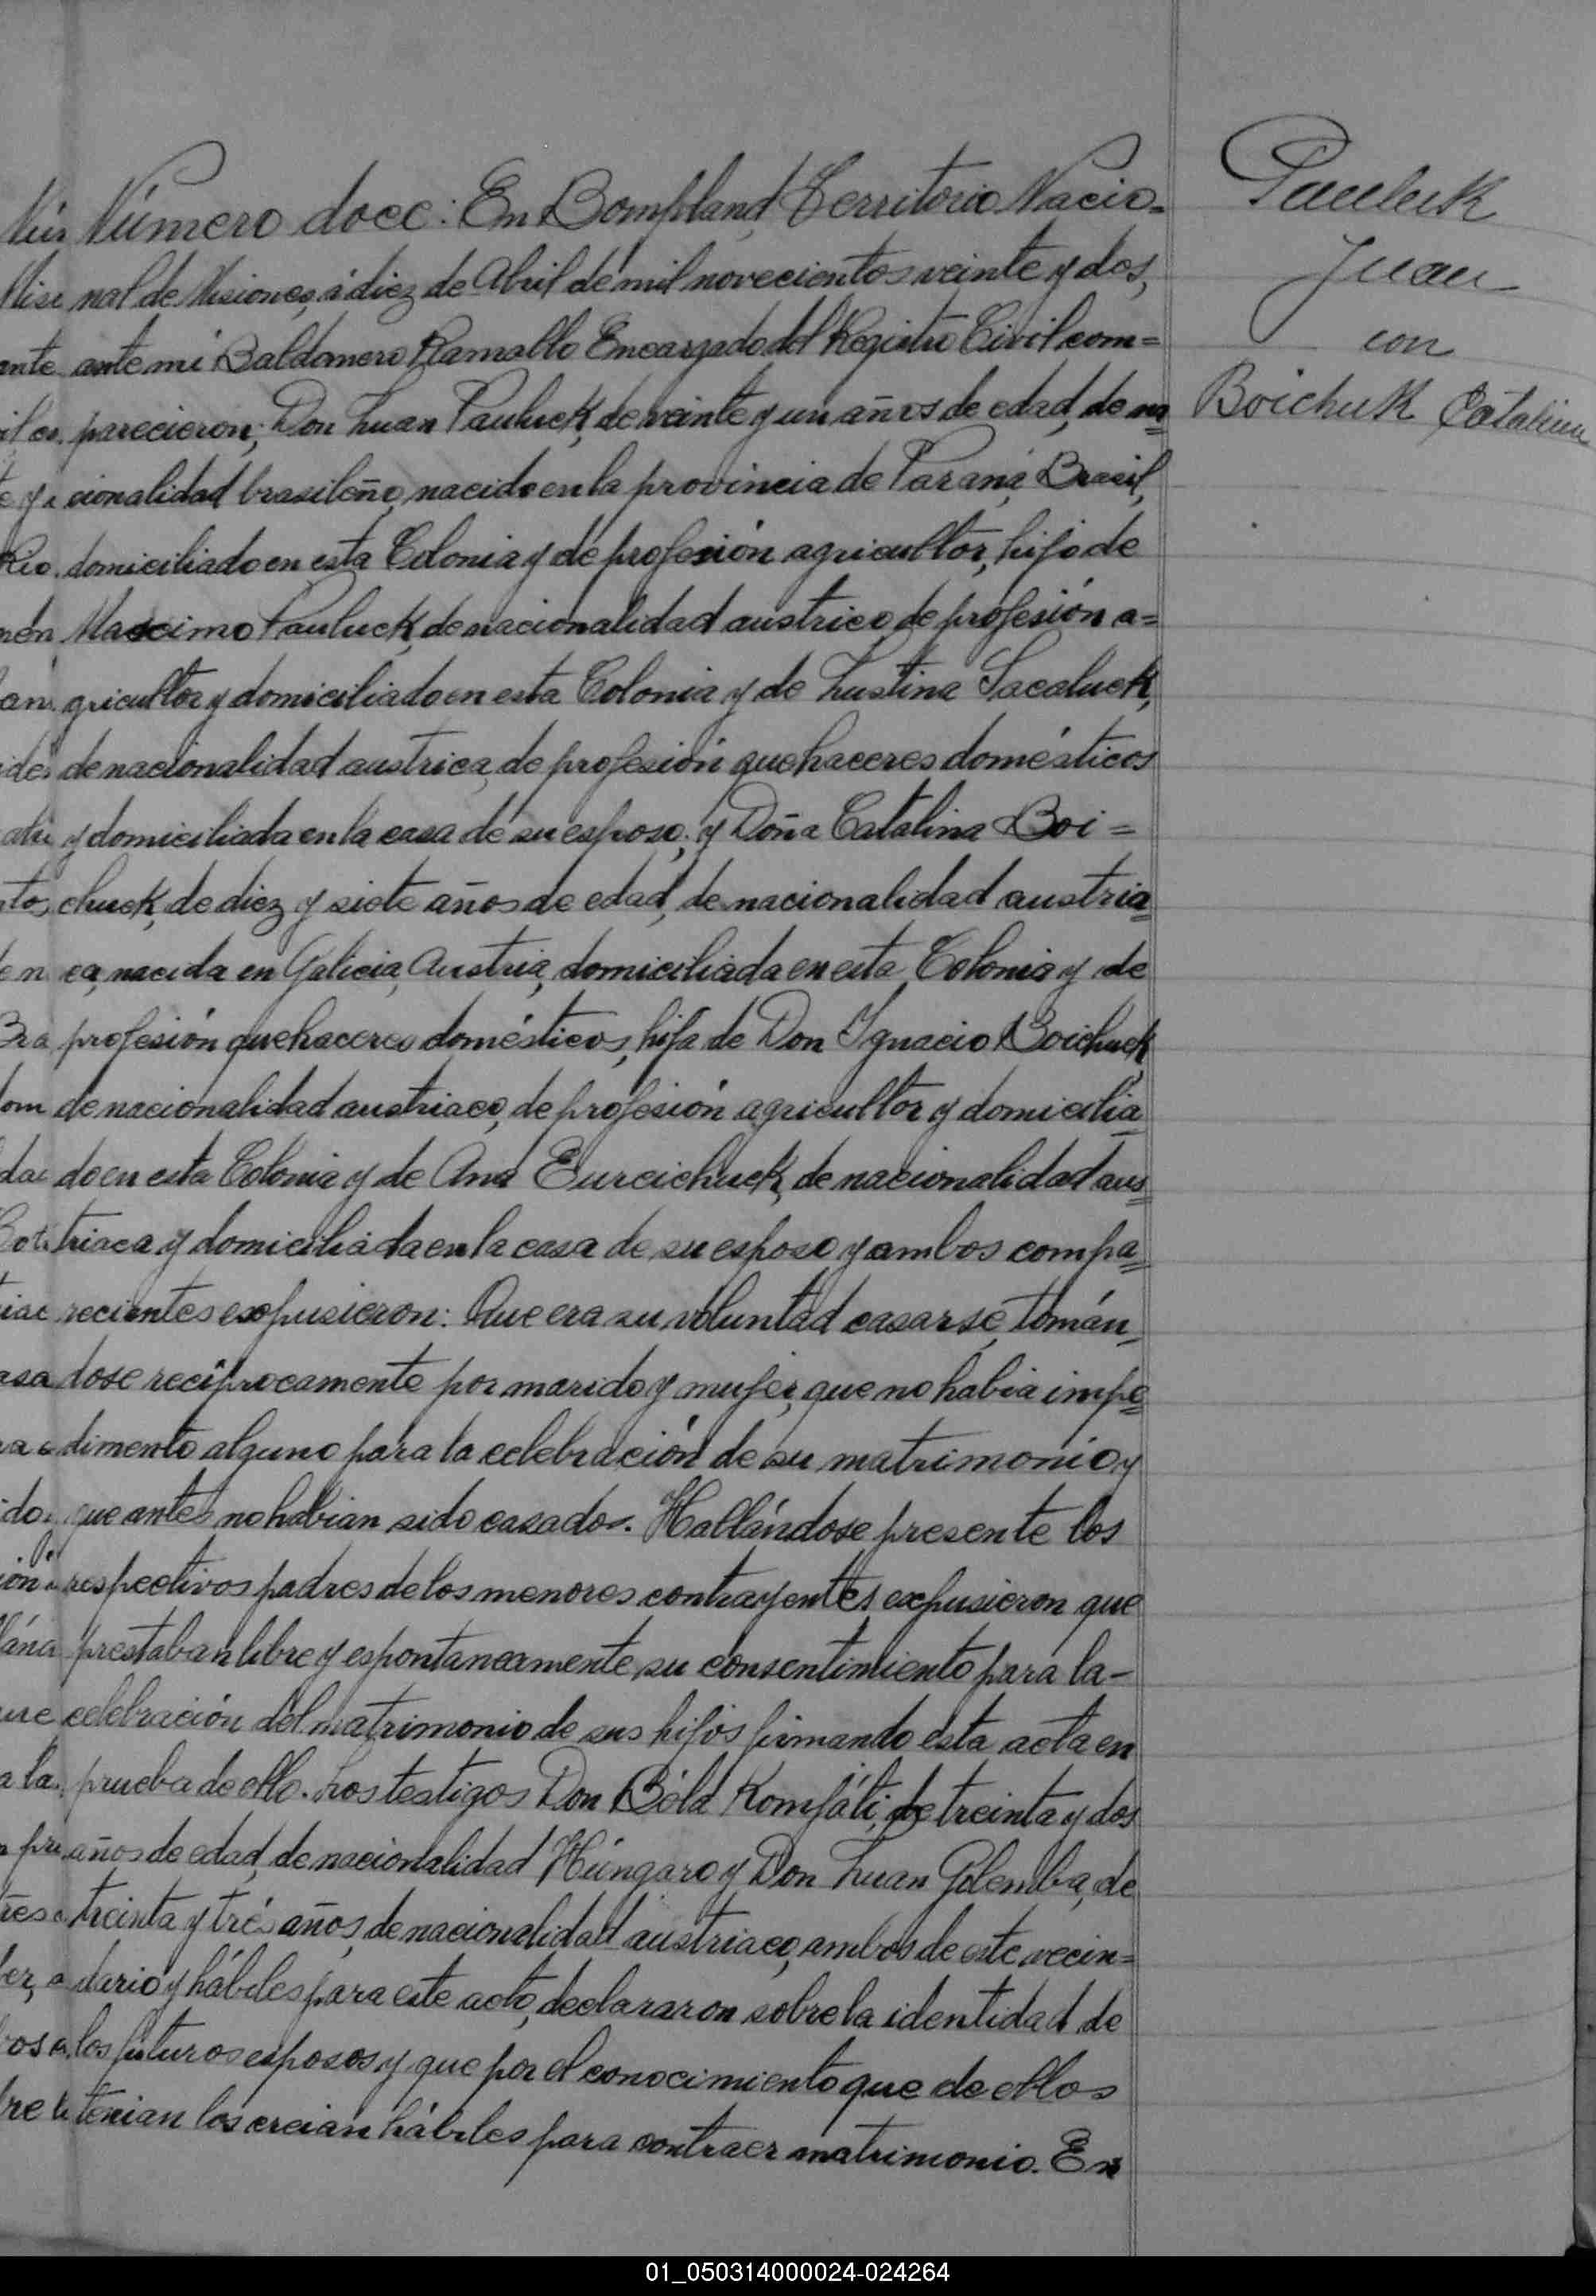 Número doce: En Bompland, Territorio Nacio=
nal de Misiones, á diez de Abril de mil novecientos veinte y dos,
ante mi Baldomero Ramallo Encargado del Registro Civil com=
parecieron; Don Juan Pauluck, de veinte y un años de edad, de na
cionalidad brasileño, nacido en la provincia de Paraná Brasil,
domiciliado en esta Colonia y de profesión agricultor, hijo de
Macsimo Pauluck, de nacionalidad austrico, de profesión a=
gricultor y domiciliado en esta Colonia y de Justina Sacaluck,
de nacionalidad austrica, de profesión quehaceres domésticos
y domiciliada en la casa de su esposo; y Doña Catalina Boi=
chuck, de diez y siete años de edad, de nacionalidad austria
ca, nacida en Galicia, Austria, domiciliada en esta Colonia y de
profesión quehaceres domésticos, hija de Don Ignacio Boichuck
de nacionalidad austriaco, de profesión agricultor y domicilia
do en esta Colonia y de Ana Eurcichuck, de nacionalidad aus
triaca y domiciliada en la casa de su esposo y ambos compa
recientes expusieron: Que era su voluntad casarse, tomán
dose recíprocamente por marido y mujer, que no habia impe
dimento alguno para la celebración de su matrimonio y
que antes no habian sido casados. Hallándose presente los
respectivos padres de los menores contrayentes, expusieron que
prestaban libre y espontaneamente su consentimiento para la-
celebración del matrimonio de sus hijos firmando esta acta en
prueba de ello. Los testigos Don Béla Kompáti, de treinta y dos
años de edad, de nacionalidad Húngaro y Don Juan Golemba, de
treinta y trés años, de nacionalidad austriaco, ambos de este vecin=
dario y hábiles para este acto, declararon sobre la identidad de
los futuros esposos y que por el conocimiento que de ellos
tenian los creian hábiles para contraer matrimonio. En
Pauluk
Juan
con
Boichuk Catalina
01_050314000024-024264